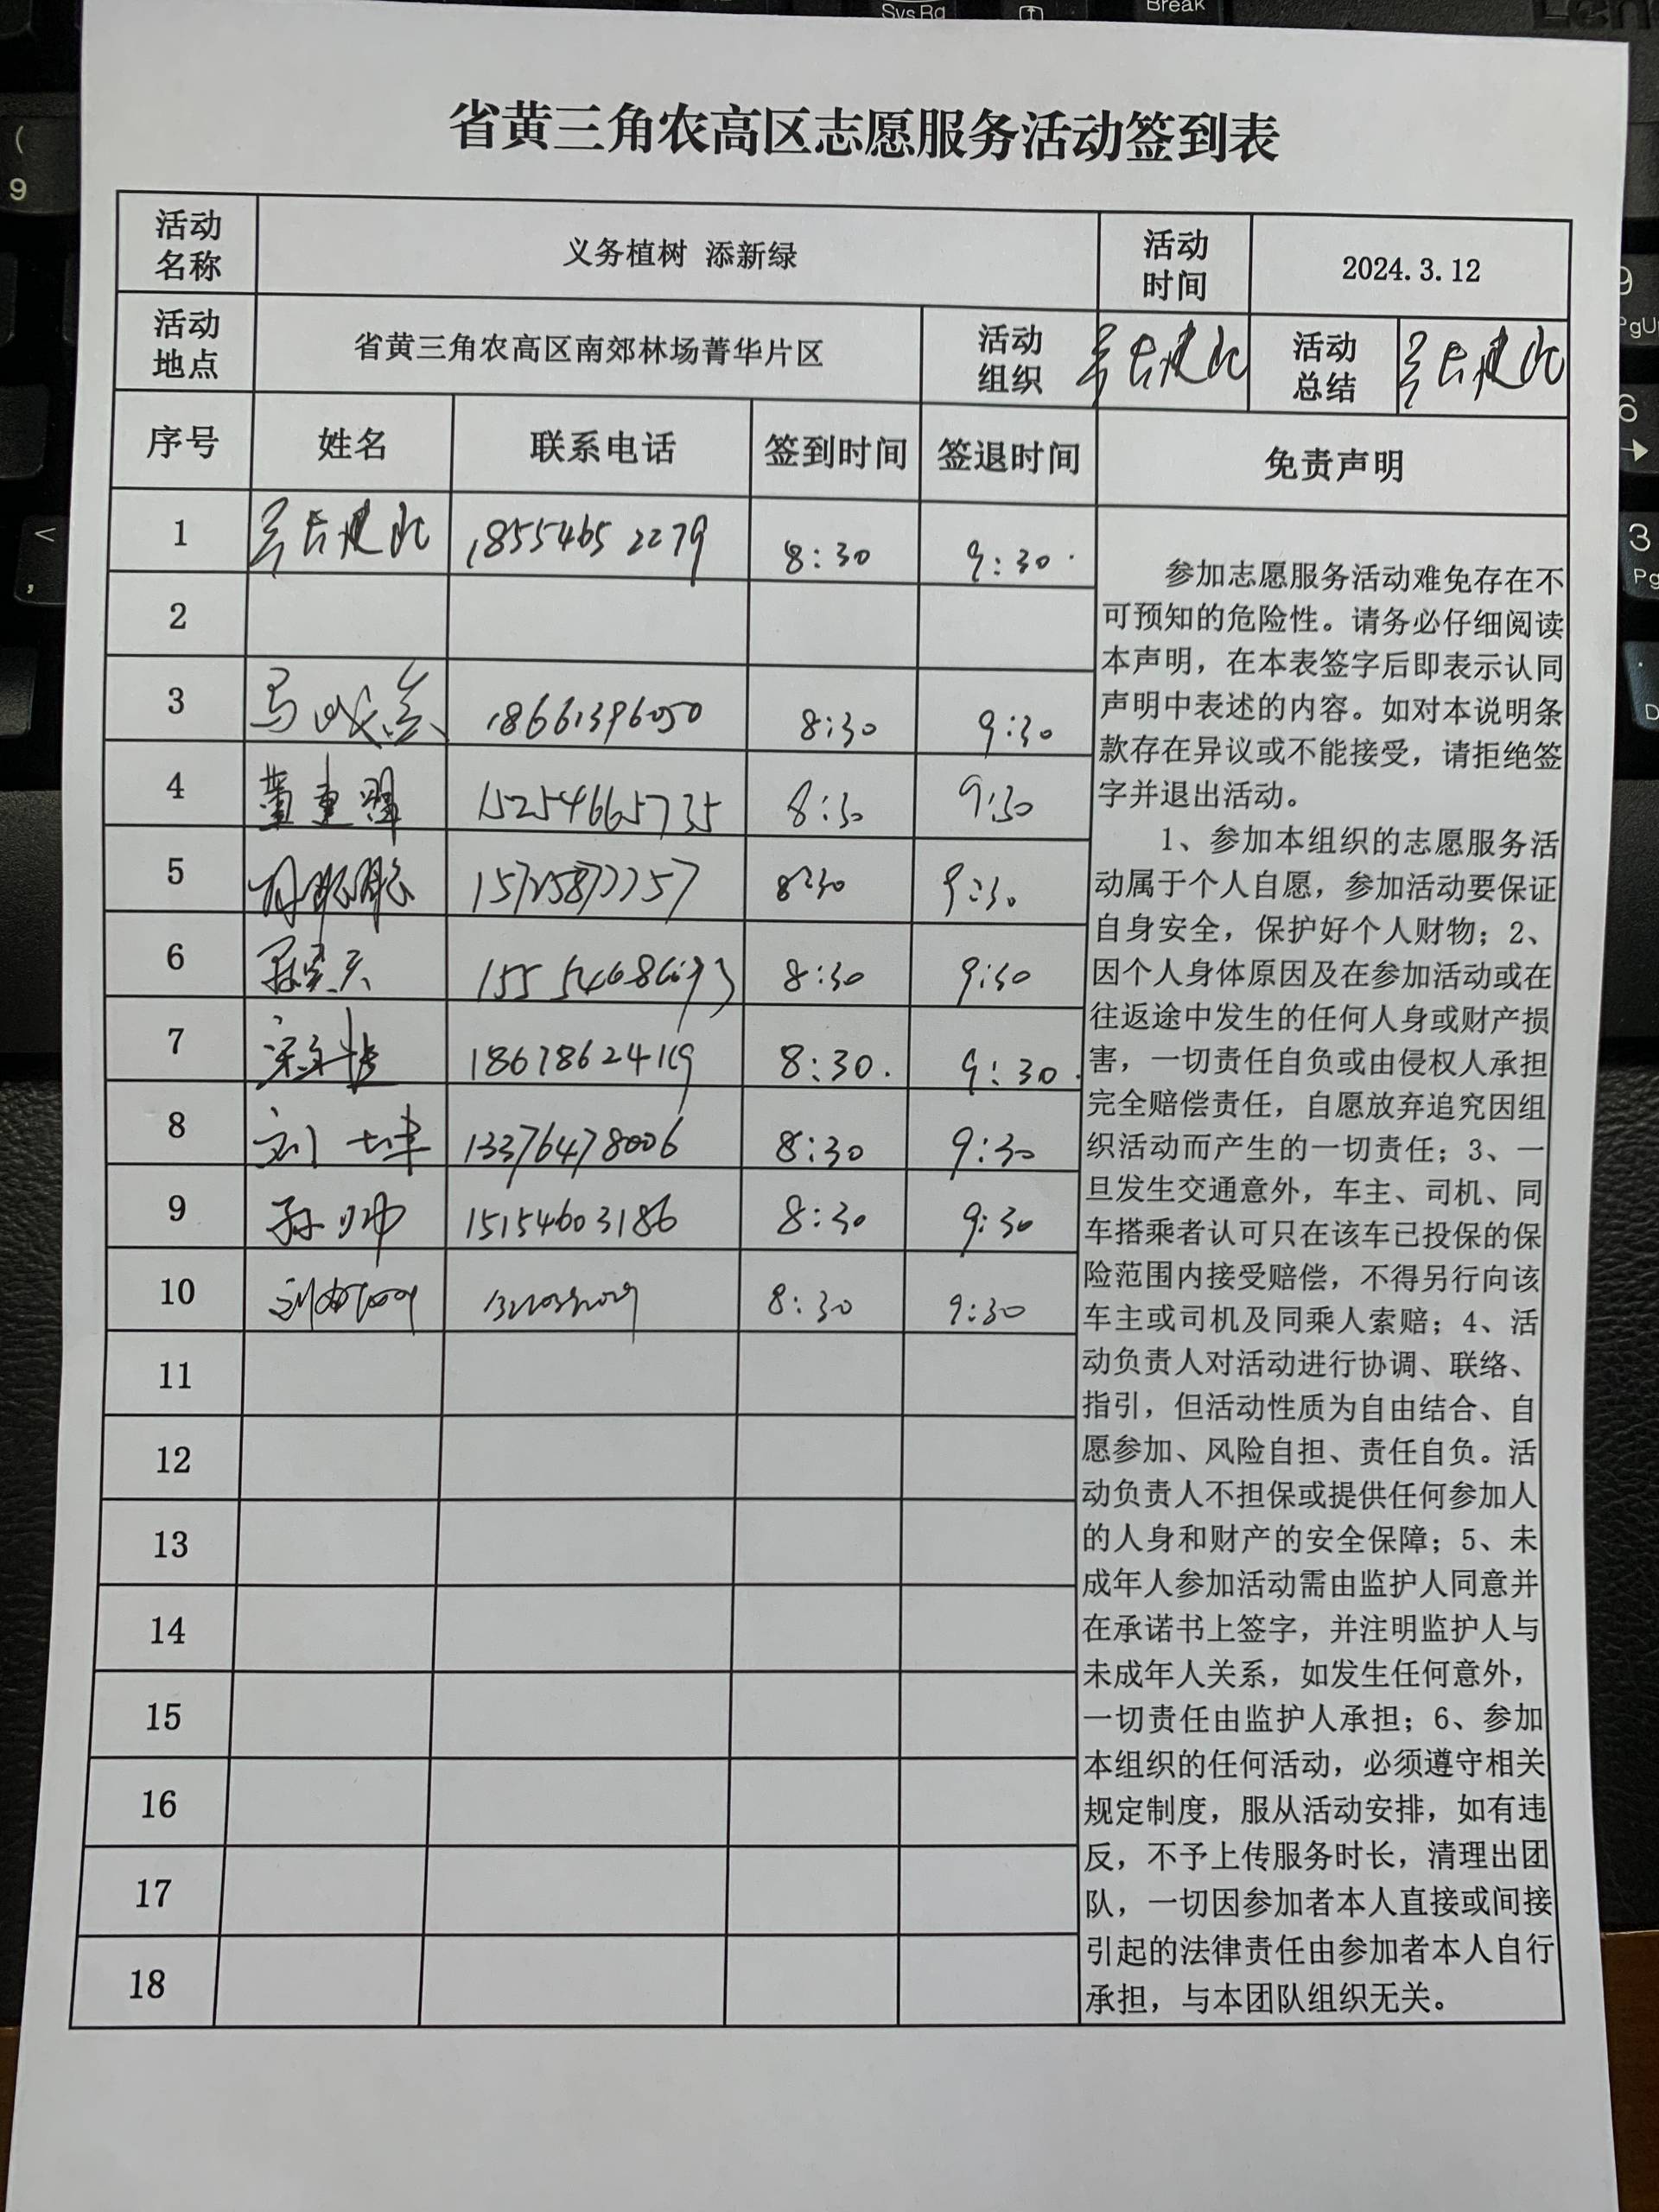 省黄三角农高区志愿服务活动签到表
活动名称 义务植树 添新绿 活动时间 2024.3.12
活动地点 省黄三角农高区南郊林场菁华片区 活动组织 活动总结
序号 姓名 联系电话 签到时间 签退时间 免责声明
1 18554652279 8:30 9:30
2
3 18661396050 8:30 9:30
4 15254665735 8:30 9:30
5 8:30 9:30
6 8:30 9:30
7 18678624119 8:30 9:30
8 刘坤 13376478006 8:30 9:30
9 孙帅 15154603186 8:30 9:30
10 8:30 9:30
11
12
13
14
15
16
17
18
参加志愿服务活动难免存在不
可预知的危险性。请务必仔细阅读
本声明，在本表签字后即表示认同
声明中表述的内容。如对本说明条
款存在异议或不能接受，请拒绝签
字并退出活动。
1、参加本组织的志愿服务活
动属于个人自愿，参加活动要保证
自身安全，保护好个人财物；2、
因个人身体原因及在参加活动或在
往返途中发生的任何人身或财产损
害，一切责任自负或由侵权人承担
完全赔偿责任，自愿放弃追究因组
织活动而产生的一切责任；3、一
旦发生交通意外，车主、司机、同
车搭乘者认可只在该车已投保的保
险范围内接受赔偿，不得另行向该
车主或司机及同乘人索赔；4、活
动负责人对活动进行协调、联络、
指引，但活动性质为自由结合、自
愿参加、风险自担、责任自负。活
动负责人不担保或提供任何参加人
的人身和财产的安全保障；5、未
成年人参加活动需由监护人同意并
在承诺书上签字，并注明监护人与
未成年人关系，如发生任何意外，
一切责任由监护人承担；6、参加
本组织的任何活动，必须遵守相关
规定制度，服从活动安排，如有违
反，不予上传服务时长，清理出团
队，一切因参加者本人直接或间接
引起的法律责任由参加者本人自行
承担，与本团队组织无关。